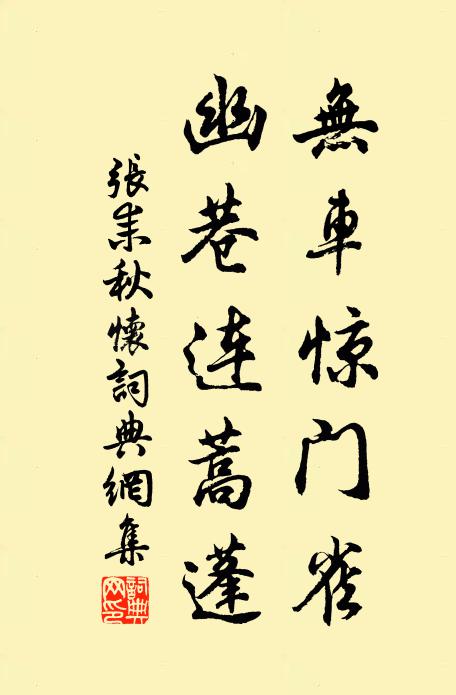 無車惊门雀
幽巷連蒿蓬
張耒秋懷詞典網集
詞典网印